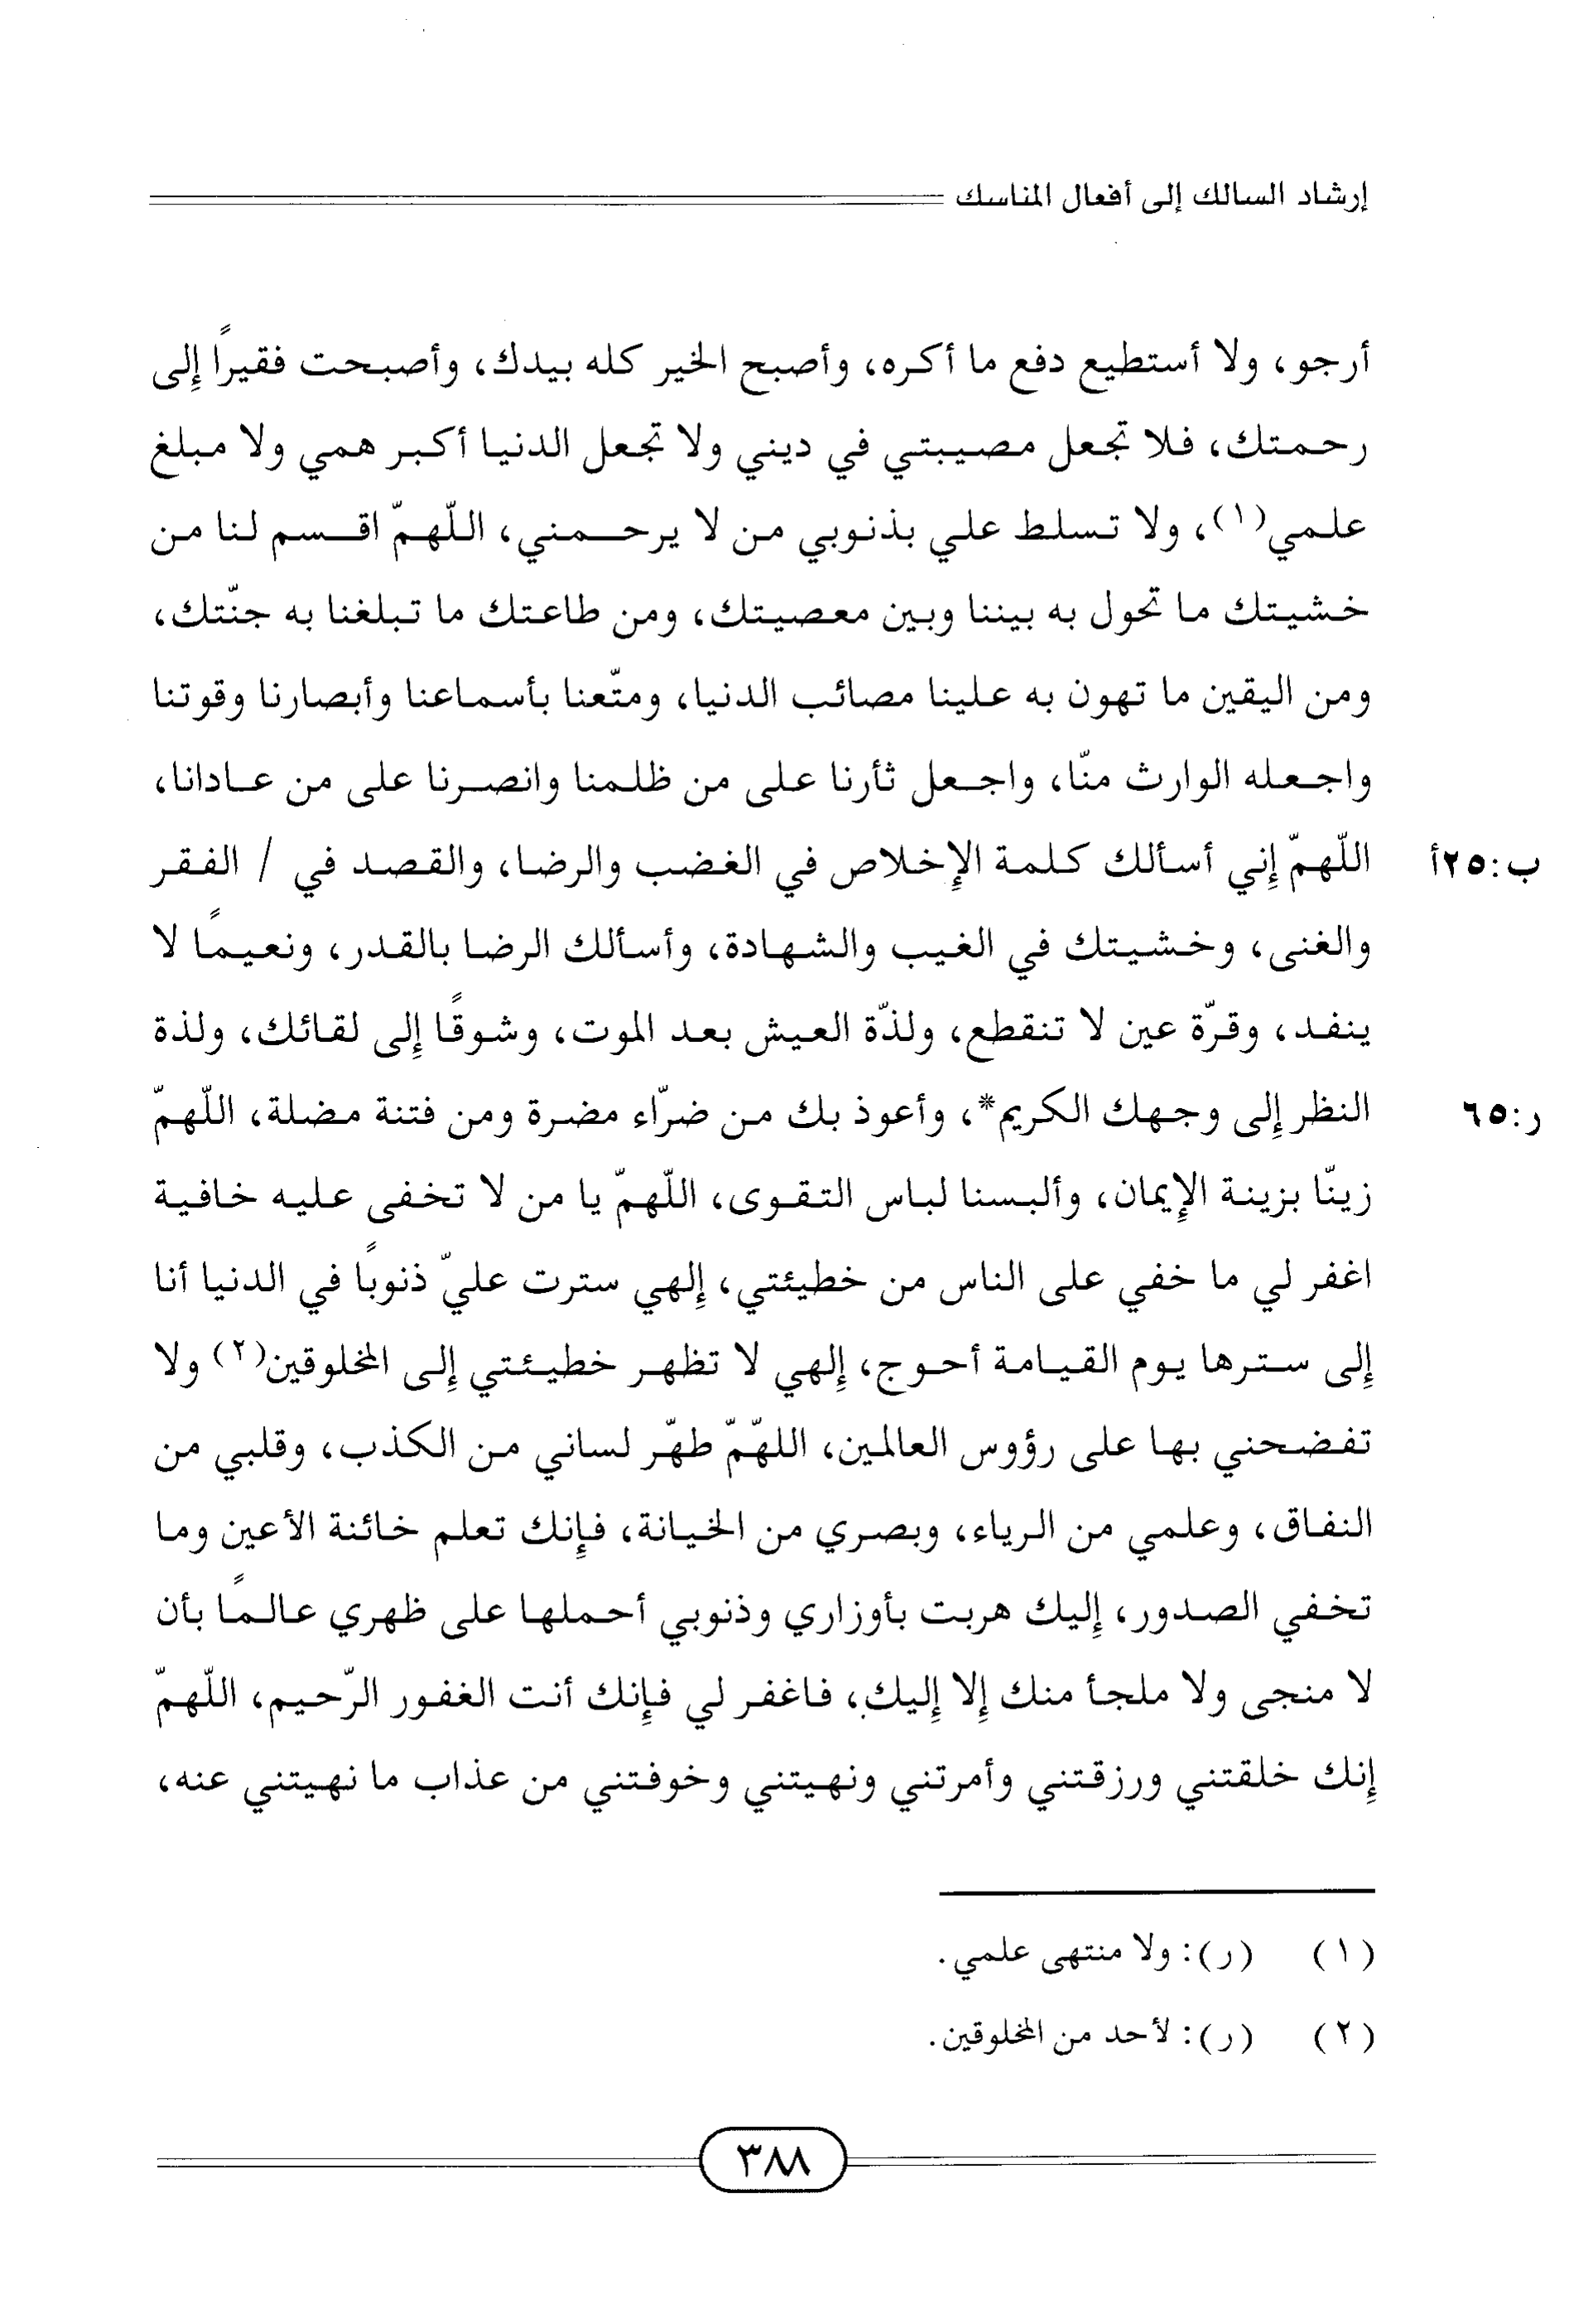 إرشاد السالك إلى أفعال المناسك
أرجو، ولا أستطيع دفع ما أكره، وأصبح الخير كله بيدك، وأصبحت فقيراً إلى
رحمتك، فلا تجعل مصيبتي في ديني ولا تجعل الدنيا أكبر همي ولا مبلغ
علمي(١)، ولا تسلط علي بذنوبي من لا يرحمني، اللّهمّ اقسم لنا من
خشيتك ما تحول به بيننا وبين معصيتك، ومن طاعتك ما تبلغنا به جنّتك،
ومن اليقين ما تهون به علينا مصائب الدنيا، ومتّعنا بأسماعنا وأبصارنا وقوتنا
واجعله الوارث منّا، واجعل ثأرنا على من ظلمنا وانصرنا على من عادانا،
اللّهمّ إني أسألك كلمة الإخلاص في الغضب والرضا، والقصد في / الفقر ب:٢٥أ
والغنى، وخشيتك في الغيب والشهادة، وأسألك الرضا بالقدر، ونعيمًا لا
ينفد، وقرّة عين لا تنقطع، ولذّة العيش بعد الموت، وشوقًا إلى لقائك، ولذة
النظر إلى وجهك الكريم*، وأعوذ بك من ضرّاء مضرة ومن فتنة مضلة، اللّهمّ ر:٦٥
زينّا بزينة الإيمان، وألبسنا لباس التقوى، اللّهمّ يا من لا تخفى عليه خافية
اغفر لي ما خفي على الناس من خطيئتي، إلهي سترت عليّ ذنوبًا في الدنيا أنا
إلى سترها يوم القيامة أحوج، إلهي لا تظهر خطيئتي إلى المخلوقين(٢) ولا
تفضحني بها على رؤوس العالمين، اللهّمّ طهّر لساني من الكذب، وقلبي من
النفاق، وعلمي من الرياء، وبصري من الخيانة، فإنك تعلم خائنة الأعين وما
تخفي الصدور، إليك هربت بأوزاري وذنوبي أحملها على ظهري عالمًا بأن
لا منجى ولا ملجأ منك إلا إليك، فاغفر لي فإنك أنت الغفور الرّحيم، اللّهمّ
إنك خلقتني ورزقتني وأمرتني ونهيتني وخوفتني من عذاب ما نهيتني عنه،
(١) (ر): ولا منتهى علمي.
(٢) (ر): لأحد من المخلوقين.
٣٨٨